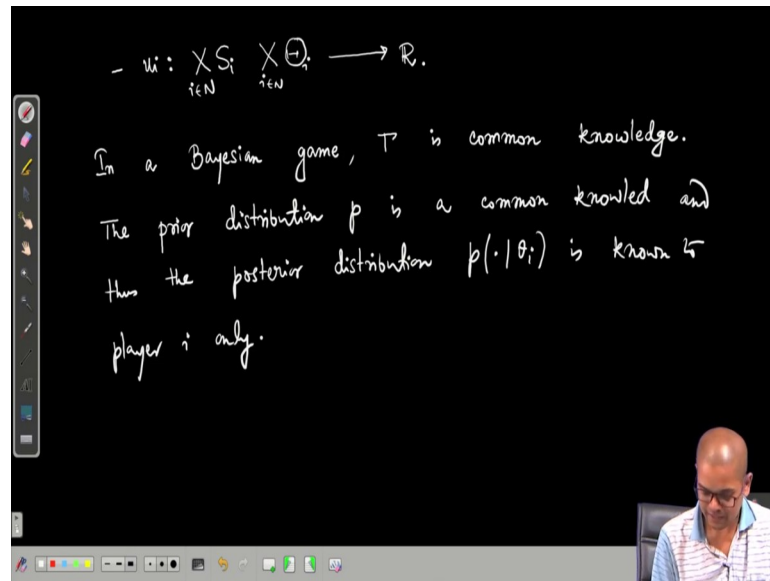 - ui : X Si X Θi ⟶ ℝ.
i∈N i∈N
In a Bayesian game, Γ is common knowledge.
The prior distribution p is a common knowled and
thus the posterior distribution p(·|θi) is known to
player i only.